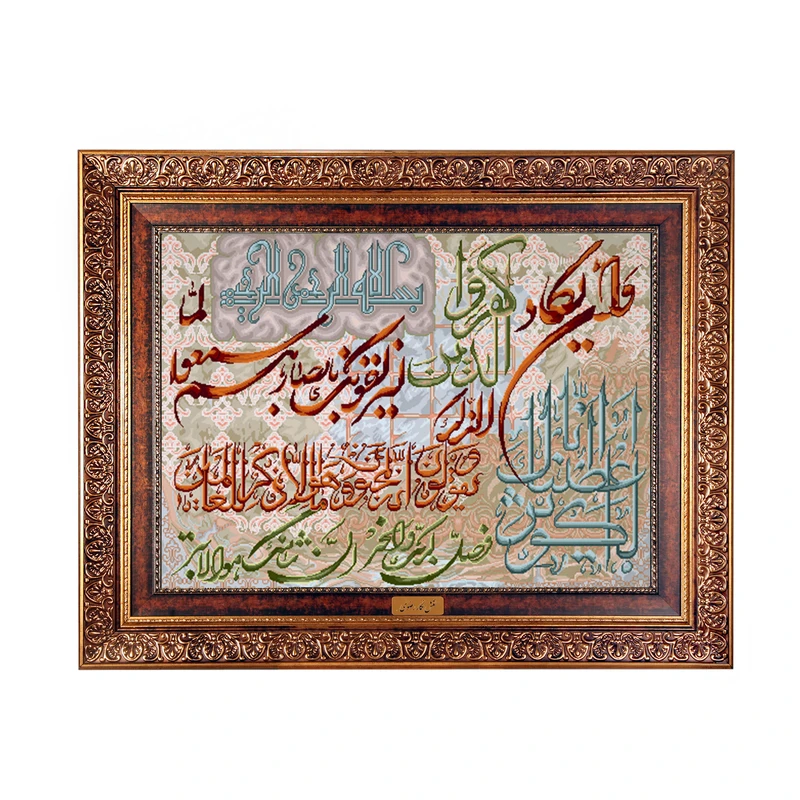 بسم الله الرحمن الرحیم
وان یکاد
الذین کفروا
لیزلقونک بابصارهم
لما سمعوا
الذکر
ویقولون انه لمجنون وما هو الا ذکر للعالمین
انا اعطیناک الکوثر
فصل لربک وانحر ان شانئک هو الابتر